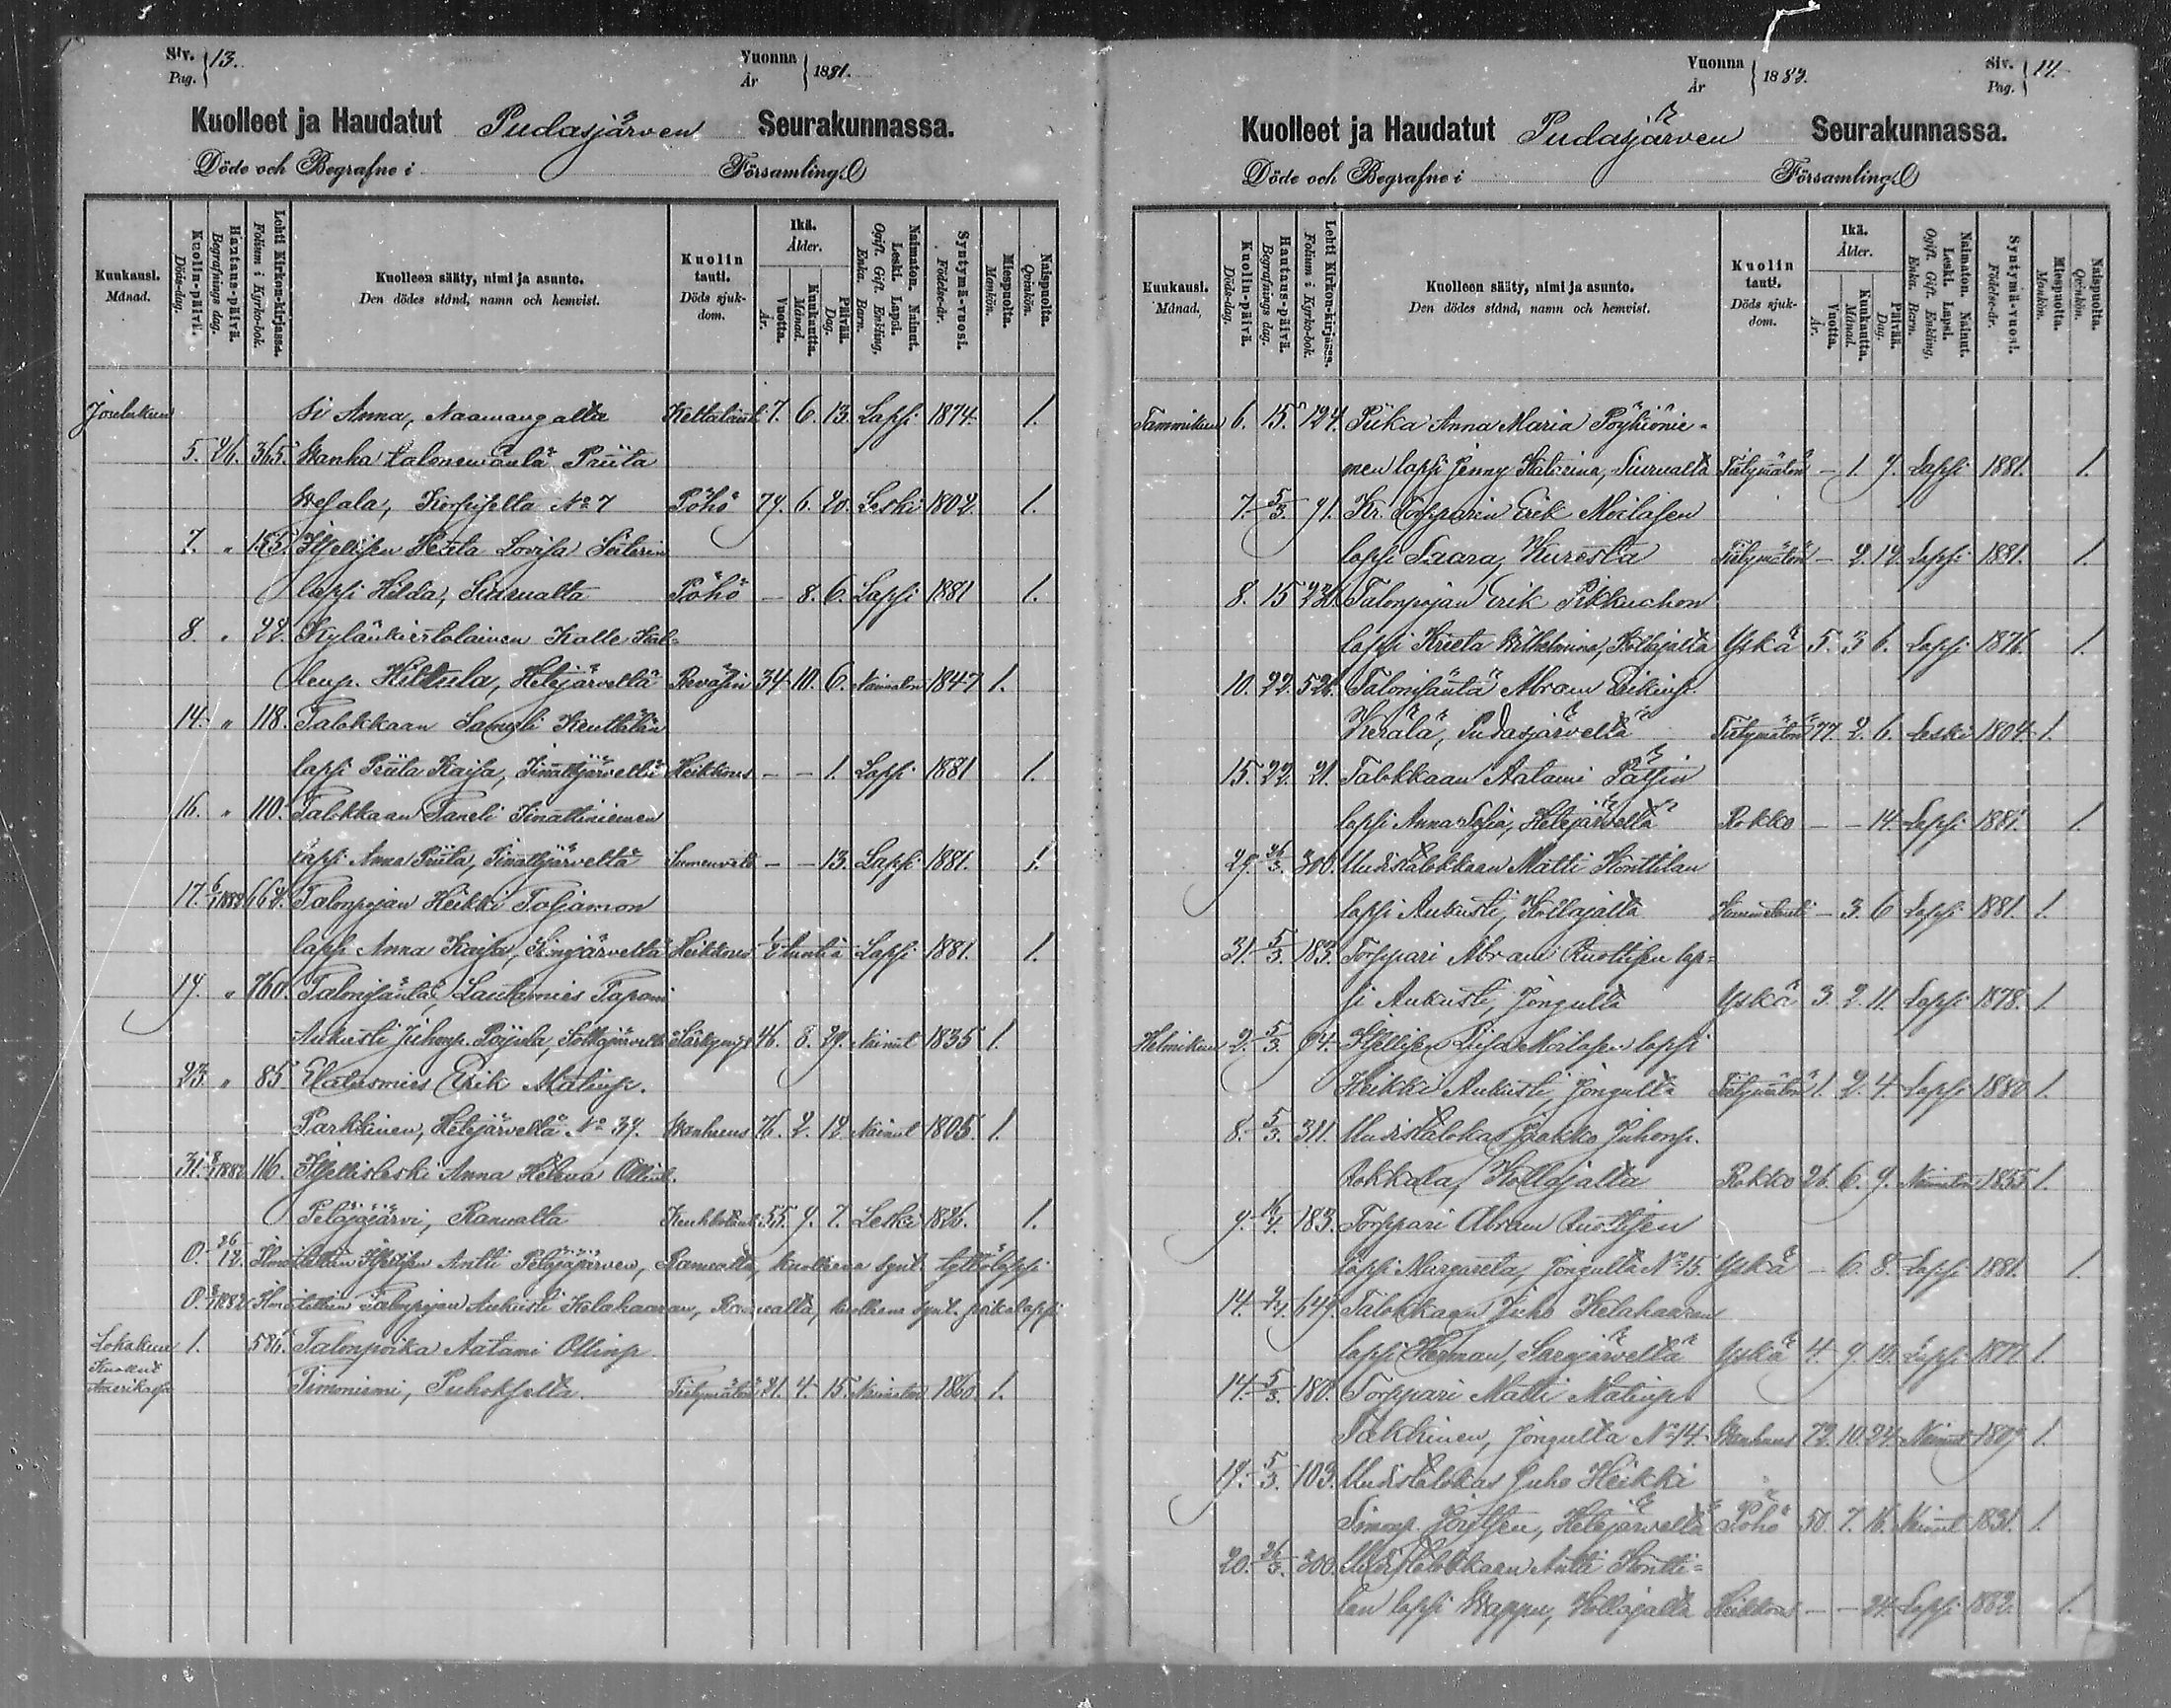 Siv. Pag. 13.
Vuonna År 1881.
Kuolleet ja Haudatut Pudasjärven Seurakunnassa.
Döde och Begrafne i Församling.
Kuukausi. Månad.
Kuolin-päivä. Döds-dag.
Hautaus-päivä. Begrafnings dag.
Lehti Kirkon-kirjassa. Folium i Kyrko-bok.
Kuolleen sääty, nimi ja asunto. Den dödes stånd, namn och hemvist.
Kuolin tauti. Döds sjukdom.
Ikä. Ålder.
Vuotta. År.
Kuukautta. Månad.
Päivää. Dag.
Naimaton. Nainut. Leski. Lapsi. Ogift. Gift. Enkling, Enka. Barn.
Syntymä-vuosi. Födelse-år.
Miespuolta. Mankön.
Naispuolta. Qvinkön.
Joulukuu si Anna, Naamangalta Keltatauti 7. 6. 13. Lapsi 1874. 1.
5. 26. 365. Wanha talonemäntä Priita
Korpiselta No 7 Pöhö 79. 6. 20. Leski 1802. 1.
7. " 155. Itsellisen Reeta Lovisa
lapsi Hilda, Siurualta Pöhö — 8. 6. Lapsi 1881 1.
8. " 22. Kylänkiertolainen Kalle Kal-
lenp. Hiltula, Hetejärveltä 34 10. 6. Naimaton 1847 1.
14. " 118. Talokkaan Samuli
lapsi Priita Kaisa, Iinattijärveltä Heikkous — — 1. Lapsi 1881 1.
16. " 110. Talokkaan Taneli Iinattiniemen
lapsi Anna Priita, Iinattijärveltä — — 13. Lapsi 1881. 1.
17. 6/1 1882 662. Talonpojan Heikki Taljamon
lapsi Anna Kaisa, Heikkous 1/2 tuntia Lapsi 1881. 1.
19. " 760. Talonisäntä, Lautamies Tapani
Aukusti Juhonp. 46. 8. 29. Nainut 1835 1.
23. " 85 Elatusmies Erik Matinp.
Parkkinen, Hetejärveltä No 39. Wanhuus 76. 2. 12. Nainut 1805. 1.
31. 8/1 1882 116. Itsellisleski Anna Helena Ollint.
Peläjäjärvi, Ranualta 55. 9. 7. Leski 1826. 1.
0. 26/12. Ilmoitettiin Itsellisen Antti Peläjäjärven, Ranualta, kuolleena synt. tyttölapsi
0. 1882 Ilmoitettiin Talonpojan Aukusti Kelahaaran, Ranualta, kuolleena synt. poikalapsi
Lokakuu 1. 586. Talonpoika Aatami Ollinp.
Kuollut Amerikassa Timoniemi, Puhokselta. Tietymätön 21. 4. 15. Naimaton 1860. 1.
Vuonna År 1882.
Siv. Pag. 14.
Kuolleet ja Haudatut Pudasjärven Seurakunnassa.
Döde och Begrafne i Församling.
Kuukausi. Månad.
Kuolin-päivä. Döds-dag.
Hautaus-päivä. Begrafnings dag.
Lehti Kirkon-kirjassa. Folium i Kyrko-bok.
Kuolleen sääty, nimi ja asunto. Den dödes stånd, namn och hemvist.
Kuolin tauti. Döds sjukdom.
Ikä. Ålder.
Vuotta. År.
Kuukautta. Månad.
Päivää. Dag.
Naimaton. Nainut. Leski. Lapsi. Ogift. Gift. Enkling, Enka. Barn.
Syntymä-vuosi. Födelse-år.
Miespuolta. Mankön.
Naispuolta. Qvinkön.
Tammikuu 6. 15. 124. Piika Anna Maria Pöyhönie-
men lapsi Jenny Katarina, Siurualta Tietymätön — 1. 9. Lapsi 1881. 1.
7. 5/3. 91. Kr. Torpparin Erik Moilasen
lapsi Saara, Kuresta Tietymätön — 2. 12. Lapsi 1881. 1.
8. 15 Talonpojan Erik
lapsi Kreeta Wilhelmina, Kollajalta Yskä 5. 3 6. Lapsi 1876. 1.
10. 22. 526. Talonisäntä Abram Erkinp.
Kerälä, Pudasjärveltä Tietymätön 77. 2. 6. Leski 1804. 1.
15. 22. 21. Talokkaan Aatami Pätsin
lapsi Anna Sofia, Hetejärveltä Rokko — — 14. Lapsi 1881. 1.
29. 26/3. 300. Uudistalokkaan Matti Konttilan
lapsi Aukusti, Kollajalta — 3. 6 Lapsi 1881. 1.
31. 5/3. 183. Torppari Abram Ruottisen lap-
si Aukusti, Jongulta Yskä 3. 2. 11. Lapsi 1878. 1.
Helmikuu 2. 5/3. 94. Itsellisen Liisa Moilasen lapsi
Heikki Aukusti, Jongulta Tietymätön 1. 2. 4. Lapsi 1880 1.
8. 5/3. 311. Uudistalokas Jaakko Juhonp.
Rokkala, Kollajalta Rokko 26. 6. 9. Naimaton 1855 1.
9. 183. Torppari Abram Ruottisen
lapsi Margareeta, Jongulta No 15. Yskä — 6. 8. Lapsi 1881. 1.
14. 649. Talokkaan Juho Kelahaaran
lapsi Herman, Sarajärveltä Yskä 4. 9. 10. Lapsi 1877. 1.
14. 5/3. 180. Torppari Matti Matinp.
Takkinen, Jongulta No 14. Wanhuus 72. 10. 24. Nainut 1809. 1.
19. 5/3. 103. Uudistalokas Juho Heikki
Simonp. Hetejärveltä Pöhö 50. 7. 16. Nainut 1831. 1.
20. 26/3. 300. Uudistalokkaan Antti Kontti-
lan lapsi Wappu, Kollajalta Heikkous — — 24. Lapsi 1882. 1.